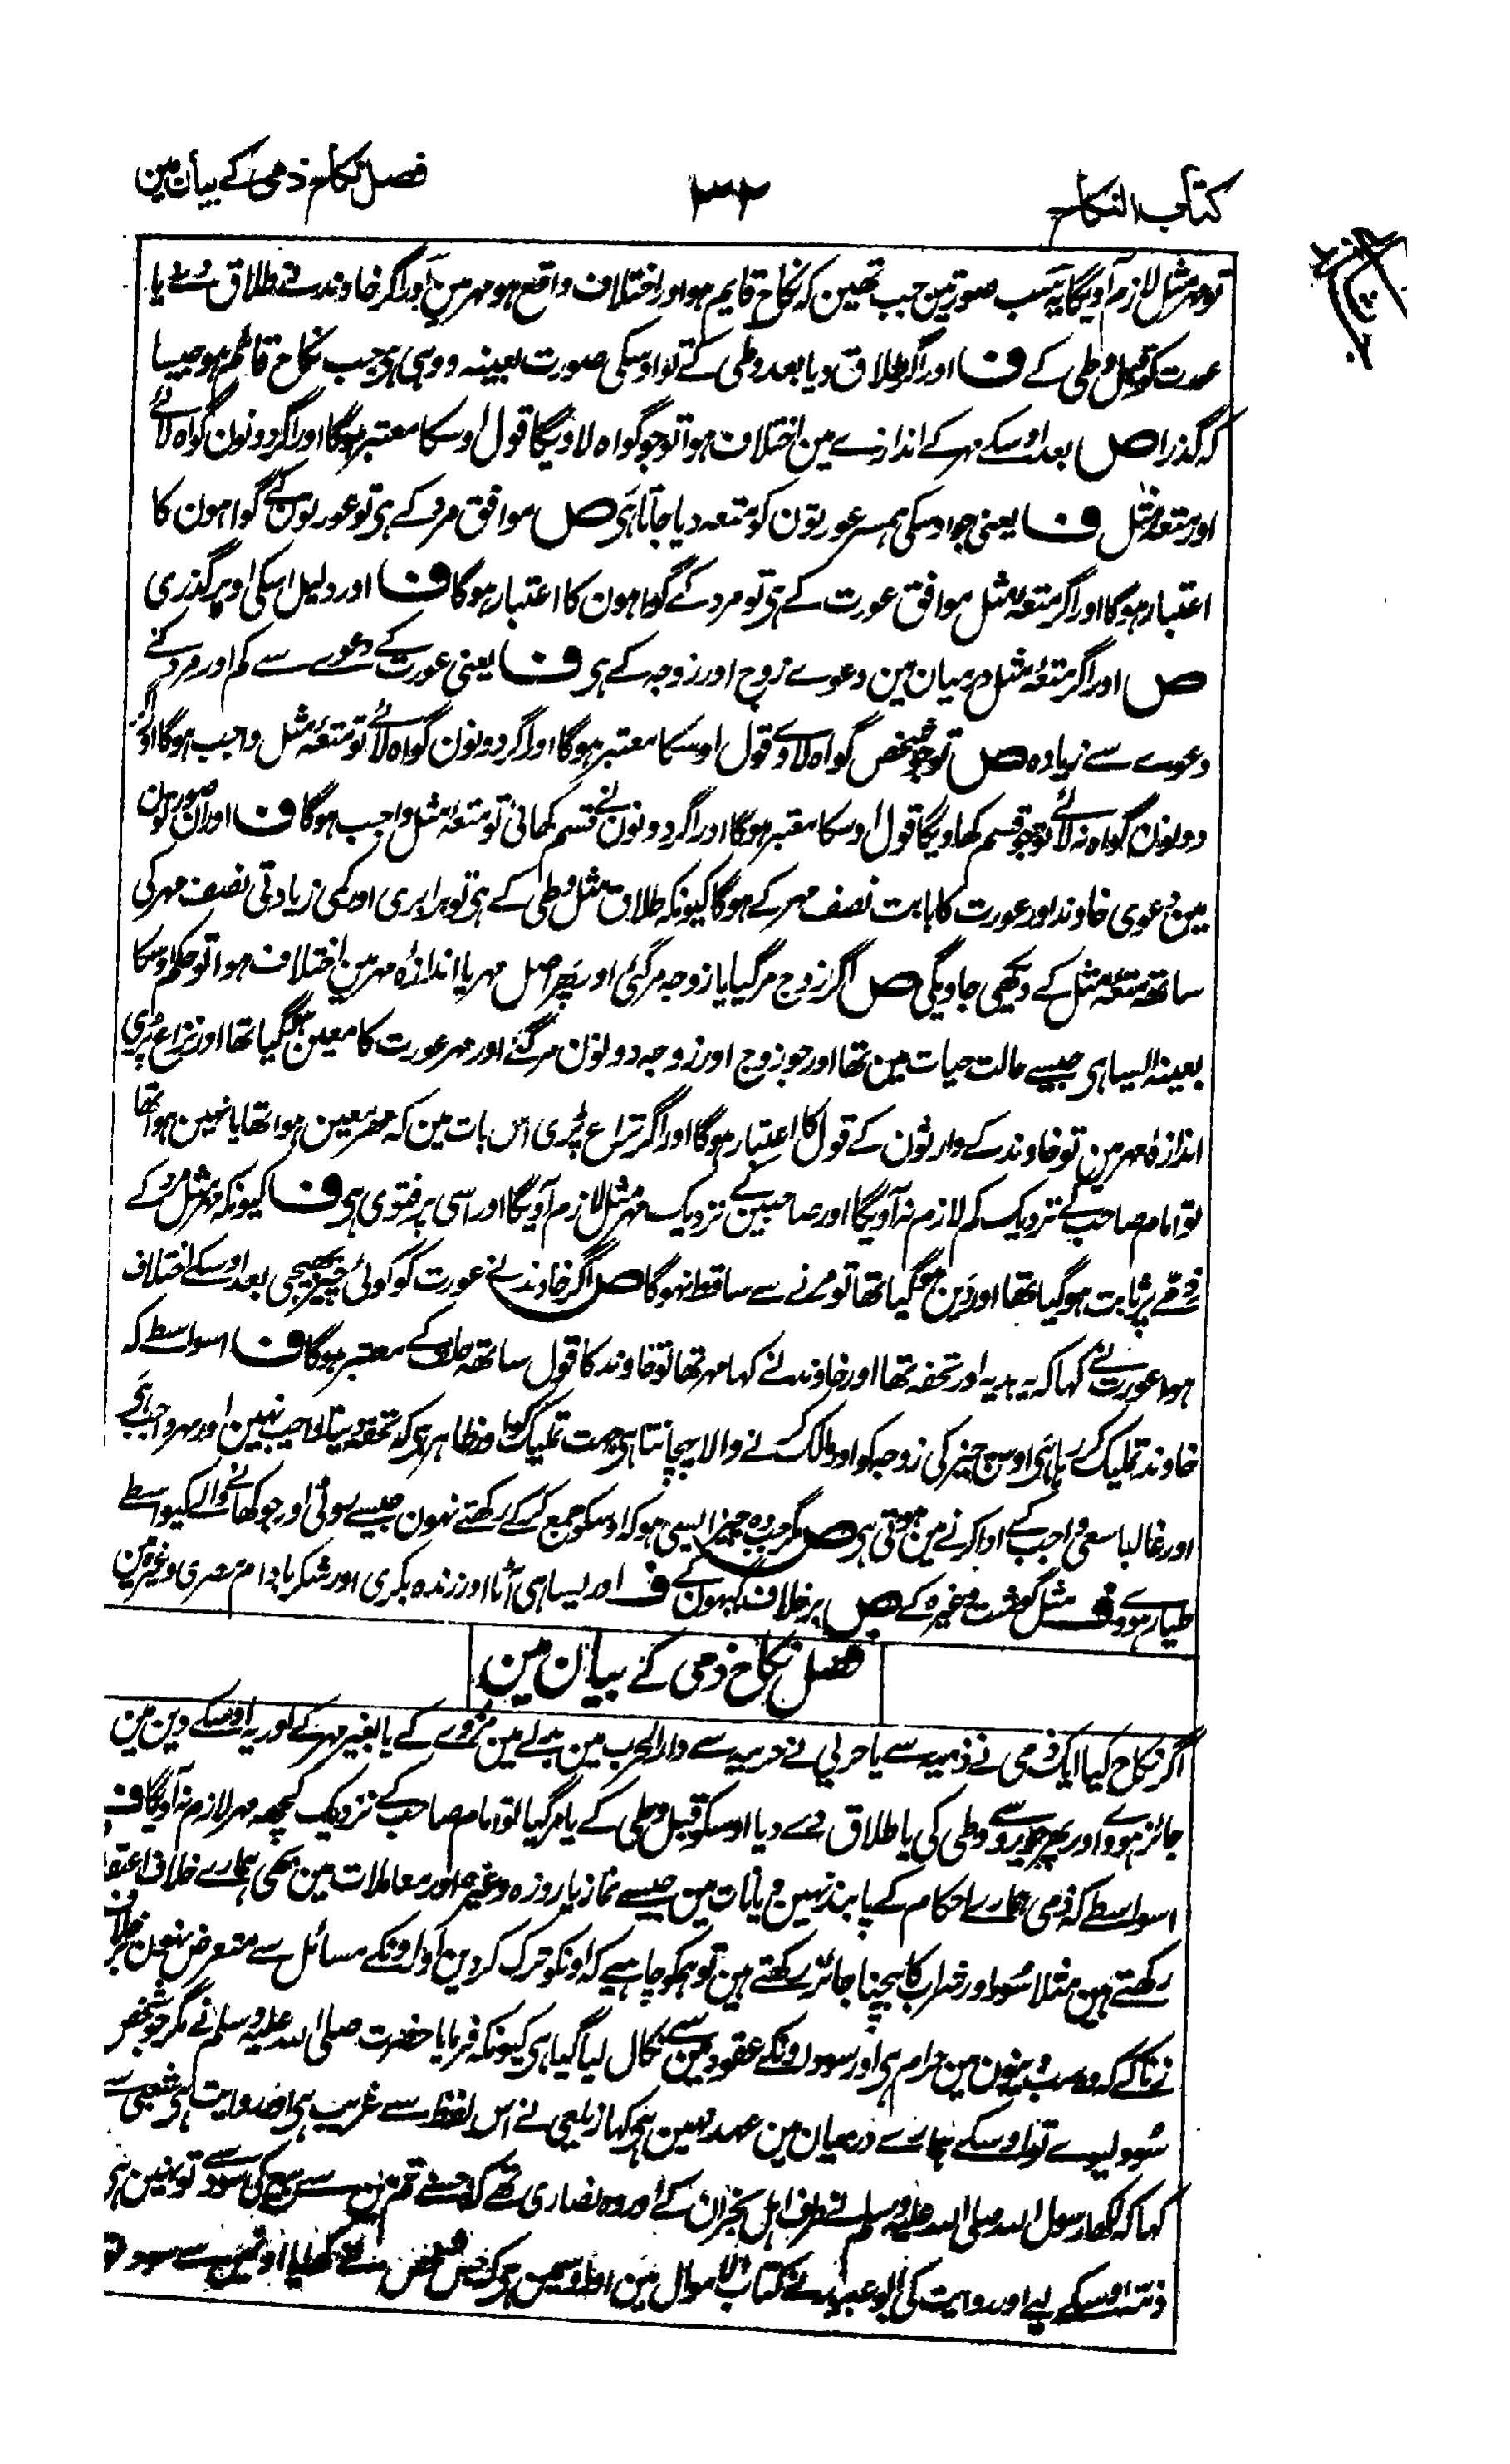 کتاب النکاح
۳۲
فصل نکاح ذمی کے بیان مین
تو مہر مثل لازم آویگا یہ سب صورتین جب تھین کہ نکاح قایم ہو اور اختلاف واقع ہو مہر مین اور اگر خاوند نے طلاق دے یا
عورت کو قبل وطی کے ف اور اگر طلاق دیا بعد وطی کے تو اوسکی صورت بعینہ وہی ہی جب نکاح قائم ہو جیسا
کہ گذرا ص بعد اوسکے مہر کے اندازے مین اختلاف ہوا تو جو گواہ لاویگا قول اوسکا معتبر ہوگا اور اگر دونون گواہ لائے
اور متعہ مثل ف یعنی جو اوسکی ہمسر عورتون کو متعہ دیا جاتا ہی ص موافق مرد کے ہی تو عورتون کے گواہون کا
اعتبار ہوگا اور اگر متعہ مثل موافق عورت کے ہی تو مرد کے گواہون کا اعتبار ہوگا ف اور دلیل اسکی اوپر گذری
ص اور اگر متعہ مثل درمیان مین دعوے زوج اور زوجہ کے ہی ف یعنی عورت کے دعوے سے کم اور مرد کے
دعوے سے زیادہ ص تو جو شخص گواہ لاوے قول اوسکا معتبر ہوگا اور اگر دونون گواہ لائے تو متعہ مثل واجب ہوگا اور اگر
دونون گواہ نہ لائے تو جو قسم کھاویگا قول اوسکا معتبر ہوگا اور اگر دونون نے قسم کھائی تو متعہ مثل واجب ہوگا ف اور ان صورتون
مین دعوی خاوند اور عورت کا بابت نصف مہر کے ہوگا کیونکہ طلاق مثل وطی کے ہی تو برابری اور کمی زیادتی نصف مہر کی
ساتھ متعہ مثل کے دیکھی جاویگی ص اگر زوج مر گیا یا زوجہ مر گئی اور پھر اصل مہر یا اندازہ مہر مین اختلاف ہوا تو حکم اوسکا
بعینہ ایسا ہی جیسے حالت حیات مین تھا اور جو زوج اور زوجہ دونون مر گئے اور مہر عورت کا معین ہوگیا تھا اور نزاع پڑی
اندازہ مہر مین تو خاوند کے وارثون کے قول کا اعتبار ہوگا اور اگر نزاع پڑی اس بات مین کہ مہر معین ہوا تھا یا نہین ہوا تھا
تو امام صاحب کے نزدیک کم لازم نہ آویگا اور صاحبین کے نزدیک مہر مثل لازم آویگا اور اسی پر فتوی ہی ف کیونکہ مہر مثل مرد کے
ذمے پر ثابت ہوگیا تھا اور دین ہوگیا تھا تو مرنے سے ساقط نہوگا ص اگر خاوند نے عورت کو کوئی چیز بھیجی بعد اوسکے اختلاف
ہوا عورت نے کہا کہ یہ ہدیہ اور تحفہ تھا اور خاوند نے کہا مہر تھا تو خاوند کا قول ساتھ حلف کے معتبر ہوگا ف اسواسطے کہ
خاوند تملیک کر رہا ہی اوس چیز کی زوجہ کو اور مالک کرنے والا پہچانتا ہی جہت تملیک کو اور ظاہر ہی کہ تحفہ دینا واجب نہین اور مہر واجب ہی
اور غالبا سعی واجب کے ادا کرنے مین ہوتی ہی ص مگر جب وہ چیز ایسی ہو کہ اوسکو جمع کر کے رکھتے نہون جیسے روٹی اور جو کھانے والے کیواسطے
طیار ہووے ف مثل گوشت وغیرہ کے ص برخلاف گیہون کے ف اور ایسا ہی آٹا اور زندہ بکری اور شکر بادام مصری وغیرہ مین
فصل نکاح ذمی کے بیان مین
اگر نکاح کیا ایک ذمی نے ذمیہ سے یا حربی نے حربیہ سے دار الحرب مین بدلے مین مردے کے یا بغیر مہر کے اور یہ اوسکے دین مین
جائز ہووے اور پھر جورو سے وطی کی یا طلاق دے دیا اوسکو قبل وطی کے یا مر گیا تو امام صاحب کے نزدیک کچھ مہر لازم نہ آویگا ف
اسواسطے کہ ذمی ہمارے احکام کے پابند نہین دیانات مین جیسے نماز یا روزہ وغیرہ اور معاملات مین بھی ہمارے خلاف اعتقاد
رکھتے ہین مثلا سود اور شراب کا بیچنا جائز رکھتے ہین تو ہمکو چاہیے کہ اونکو ترک کردین اور اونکے مسائل سے متعرض نہون بخلاف
زنا کے کہ وہ سب دینون مین حرام ہی اور سود اونکے عقود مین سے نکال لیا گیا ہی کیونکہ فرمایا حضرت صلی اللہ علیہ وسلم نے مگر جو شخص
سود لیوے تو اوسکے ہمارے درمیان مین عہد نہین ہی کہا زیلعی نے اس لفظ سے غریب ہی اور روایت ہی شعبی سے
کہا کہ لکھا رسول اللہ صلی اللہ علیہ وسلم نے طرف اہل نجران کے اور وہ نصاری تھے کہ جسنے تم مین سے بیع کی سود سے تو نہین ہی
ذمہ اوسکے لیے اور روایت کی ابو عبید نے کتاب الاموال مین اور اوسمین ہی کہ جس شخص نے کھایا اونمین سے سود